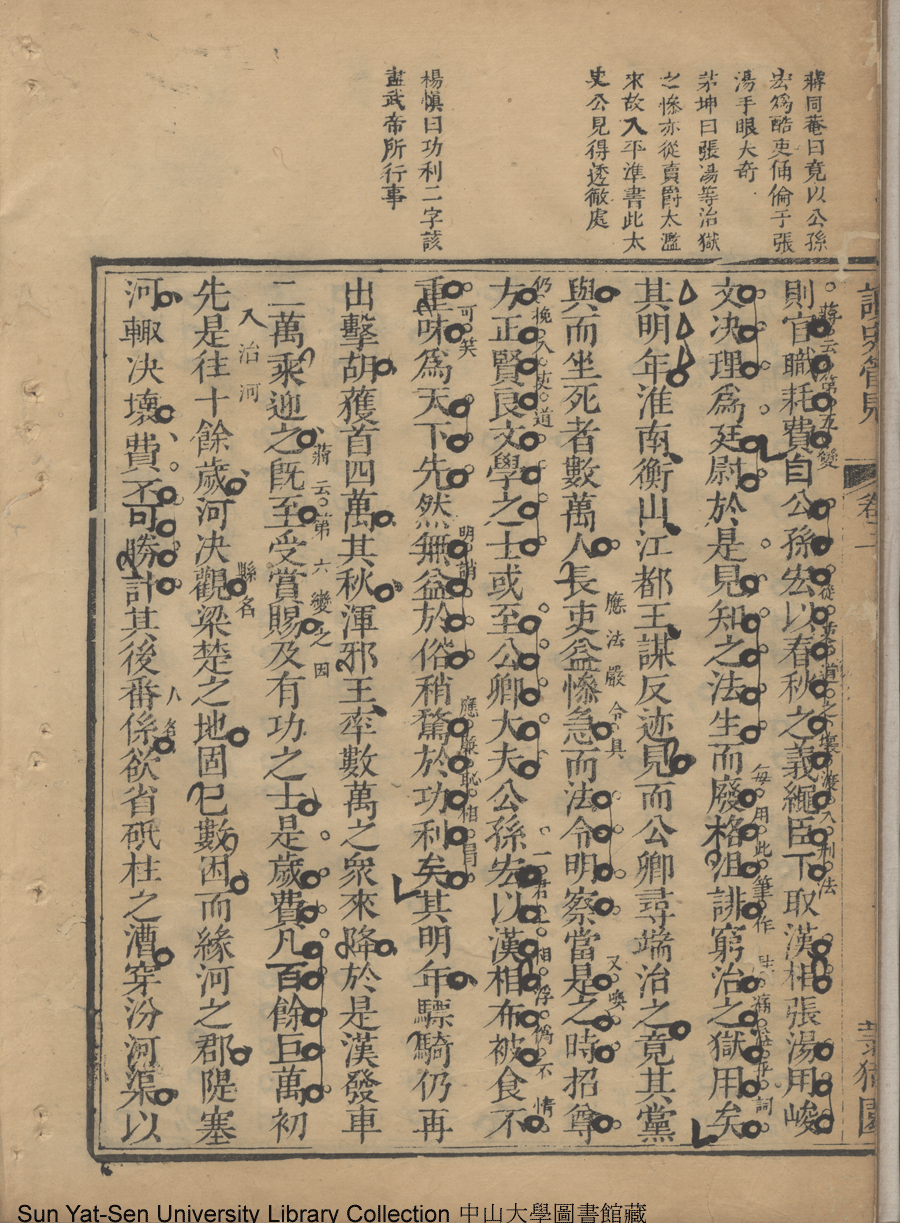 蔣同菴曰竟以公孫
宏爲酷吏俑倫于張
湯手眼大奇
茅坤曰張湯等治獄
之慘亦從賣爵太濫
來故入平準書此太
史公見得透徹處
楊愼曰功利二字該
盡武帝所行事
卷二
則官職耗費自公孫宏以春秋之義繩臣下取漢相張湯用峻
蔣云第五變
文决理爲廷尉於是見知之法生而廢格沮誹窮治之獄用矣
每用此筆作
其明年淮南衡山江都王謀反迹見而公卿尋端治之竟其黨
與而坐死者數萬人長吏益慘急而法令明察當是之時招尊
應法嚴令具
又喚
方正賢良文學之士或至公卿大夫公孫宏以漢相布被食不
仍挽入吏道
一君上相浮僞不情
重味爲天下先然無益於俗稍騖於功利矣其明年驃騎仍再
可笑
應廉恥相冒
出擊胡獲首四萬其秋渾邪王率數萬之衆來降於是漢發車
二萬乘迎之旣至受賞賜及有功之士是歲費凡百餘巨萬初
蔣云第六變之因
先是往十餘歲河决觀梁楚之地固已數困而緣河之郡隄塞
入治河
縣名
河輙决壞費不可勝計其後番係欲省砥柱之漕穿汾河渠以
人名
Sun Yat-Sen University Library Collection 中山大學圖書館藏